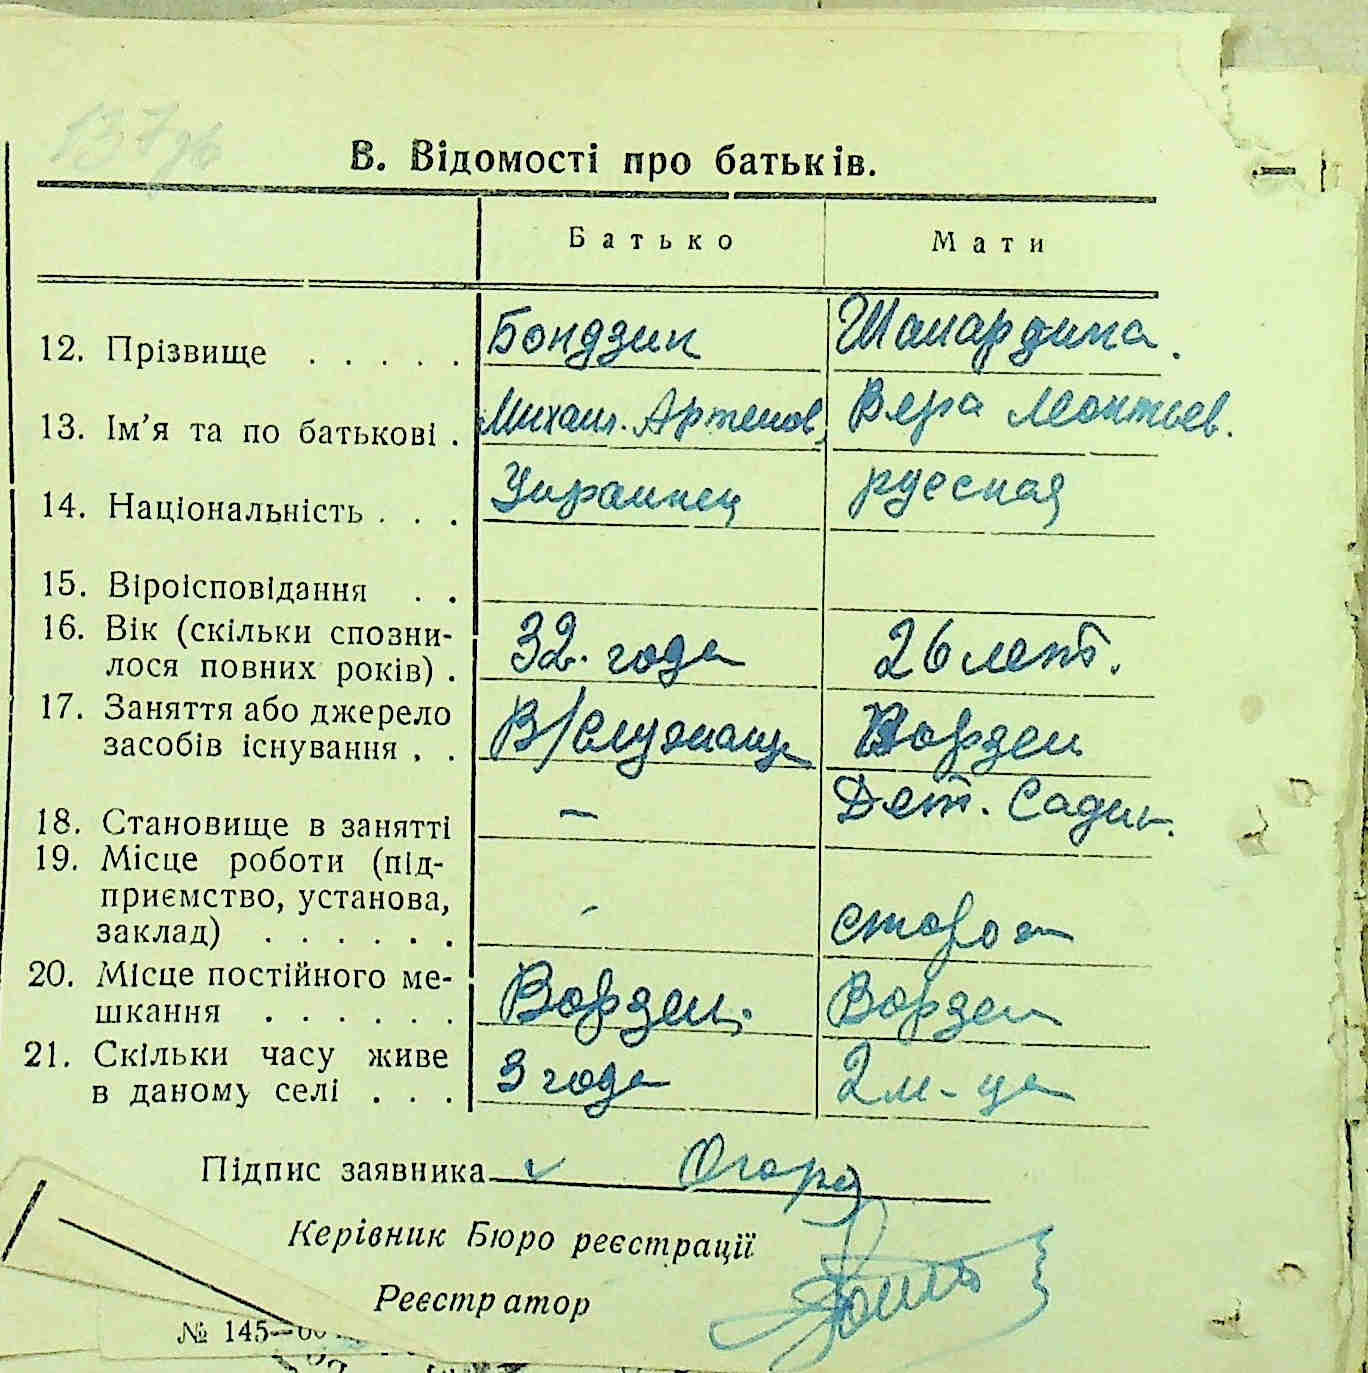 137зв
В. Відомості про батьків.
Батько Мати
12. Прізвище . . . . . Бондзик Шамардина.
13. Ім'я та по батькові . Михаил. Артемов. Вера Леонтьев.
14. Національність . . . Украинец русская
15. Віроісповідання . .
16. Вік (скільки сповни-
лося повних років) . 32. года 26 лет.
17. Заняття або джерело
засобів існування . . В/служащ Ворзель
18. Становище в занятті – Дет. Садик.
19. Місце роботи (під-
приємство, установа,
заклад) . . . . . . - сторож
20. Місце постійного ме-
шкання . . . . . . Ворзель. Ворзель
21. Скільки часу живе
в даному селі . . . 3 года 2 м-ца
Підпис заявника
Керівник Бюро реєстрації
Реєстратор
№ 145—